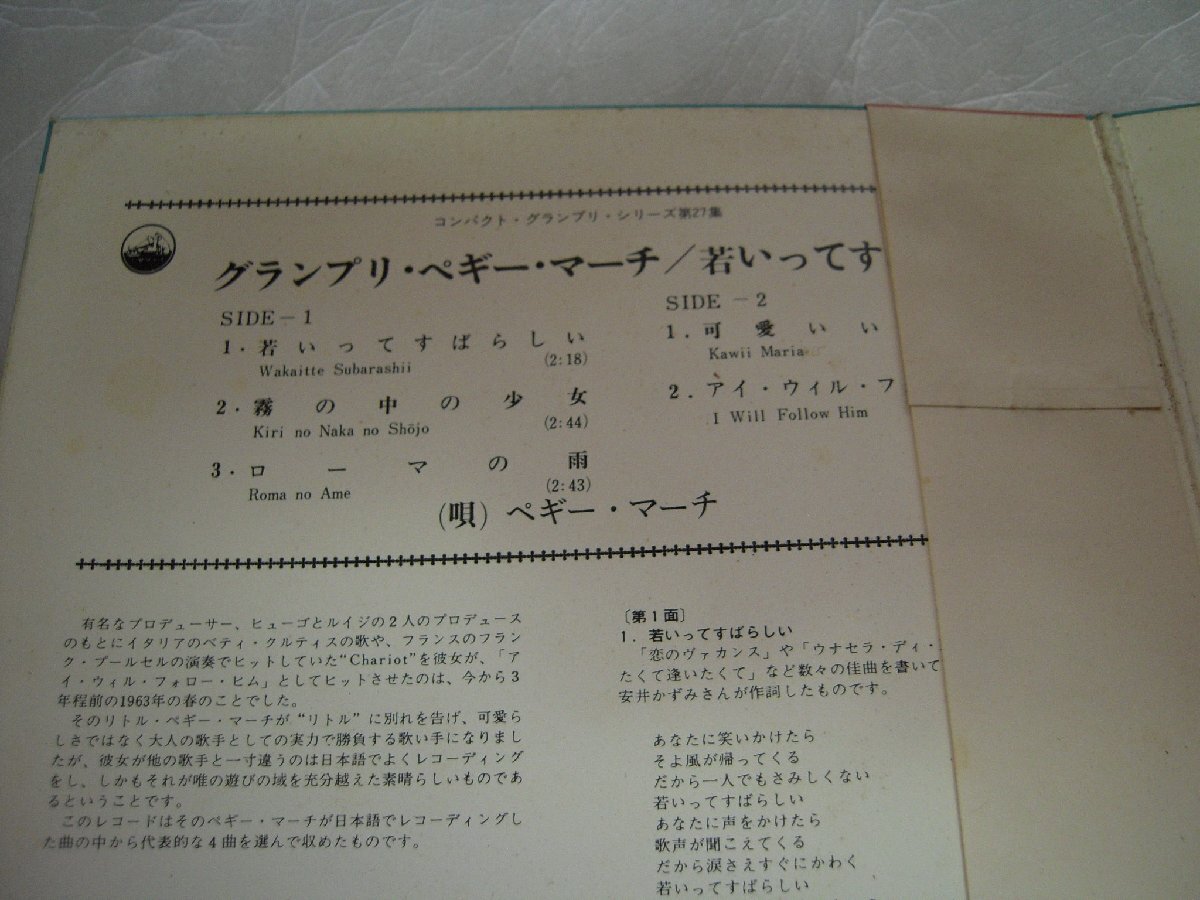 コンパクト・グランプリ・シリーズ第27集
グランプリ・ペギー・マーチ/若いってす
SIDE-1
1.若いってすばらしい
Wakaitte Subarashii
(2:18)
2.霧の中の少女
Kiri no Naka no Shōjo
(2:44)
3.ローマの雨
Roma no Ame
(2:43)
SIDE-2
1.可愛いい
Kawii Maria
2.アイ・ウィル・フ
I Will Follow Him
(唄)ペギー・マーチ
有名なプロデューサー、ヒューゴとルイジの2人のプロデュース
のもとにイタリアのベティ・クルティスの歌や、フランスのフラン
ク・プールセルの演奏でヒットしていた“Chariot”を彼女が、「ア
イ・ウィル・フォロー・ヒム」としてヒットさせたのは、今から3
年程前の1963年の春のことでした。
そのリトル・ペギー・マーチが“リトル”に別れを告げ、可愛ら
しさではなく大人の歌手としての実力で勝負する歌い手になりまし
たが、彼女が他の歌手と一寸違うのは日本語でよくレコーディング
をし、しかもそれが唯の遊びの域を充分越えた素晴らしいものであ
るということです。
このレコードはそのペギー・マーチが日本語でレコーディングし
た曲の中から代表的な4曲を選んで収めたものです。
〔第1面〕
1.若いってすばらしい
「恋のヴァカンス」や「ウナセラ・ディ・
たくて逢いたくて」など数々の佳曲を書いて
安井かずみさんが作詞したものです。
あなたに笑いかけたら
そよ風が帰ってくる
だから一人でもさみしくない
若いってすばらしい
あなたに声をかけたら
歌声が聞こえてくる
だから涙さえすぐにかわく
若いってすばらしい